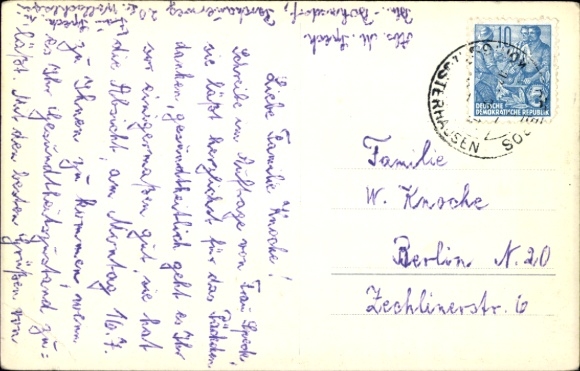 Abs. M. Speck
Bln.-Bohnsdorf,
Liebe Familie Knoche!
Schreibe im Auftrage von Frau Speck,
sie läßt herzlichst für das Päckchen
danken, gesundheitlich geht es Ihr
vor einigermaßen gut, sie hat
die Absicht, am Montag 16.7.
zu Ihnen zu kommen wenn
es Ihr Gesundheitszustand zu-
läßt. Mit den besten Grüßen von
Frau Speck
10
DEUTSCHE
DEMOKRATISCHE REPUBLIK
Familie
W. Knoche
Berlin N. 20
Zechlinerstr. 6